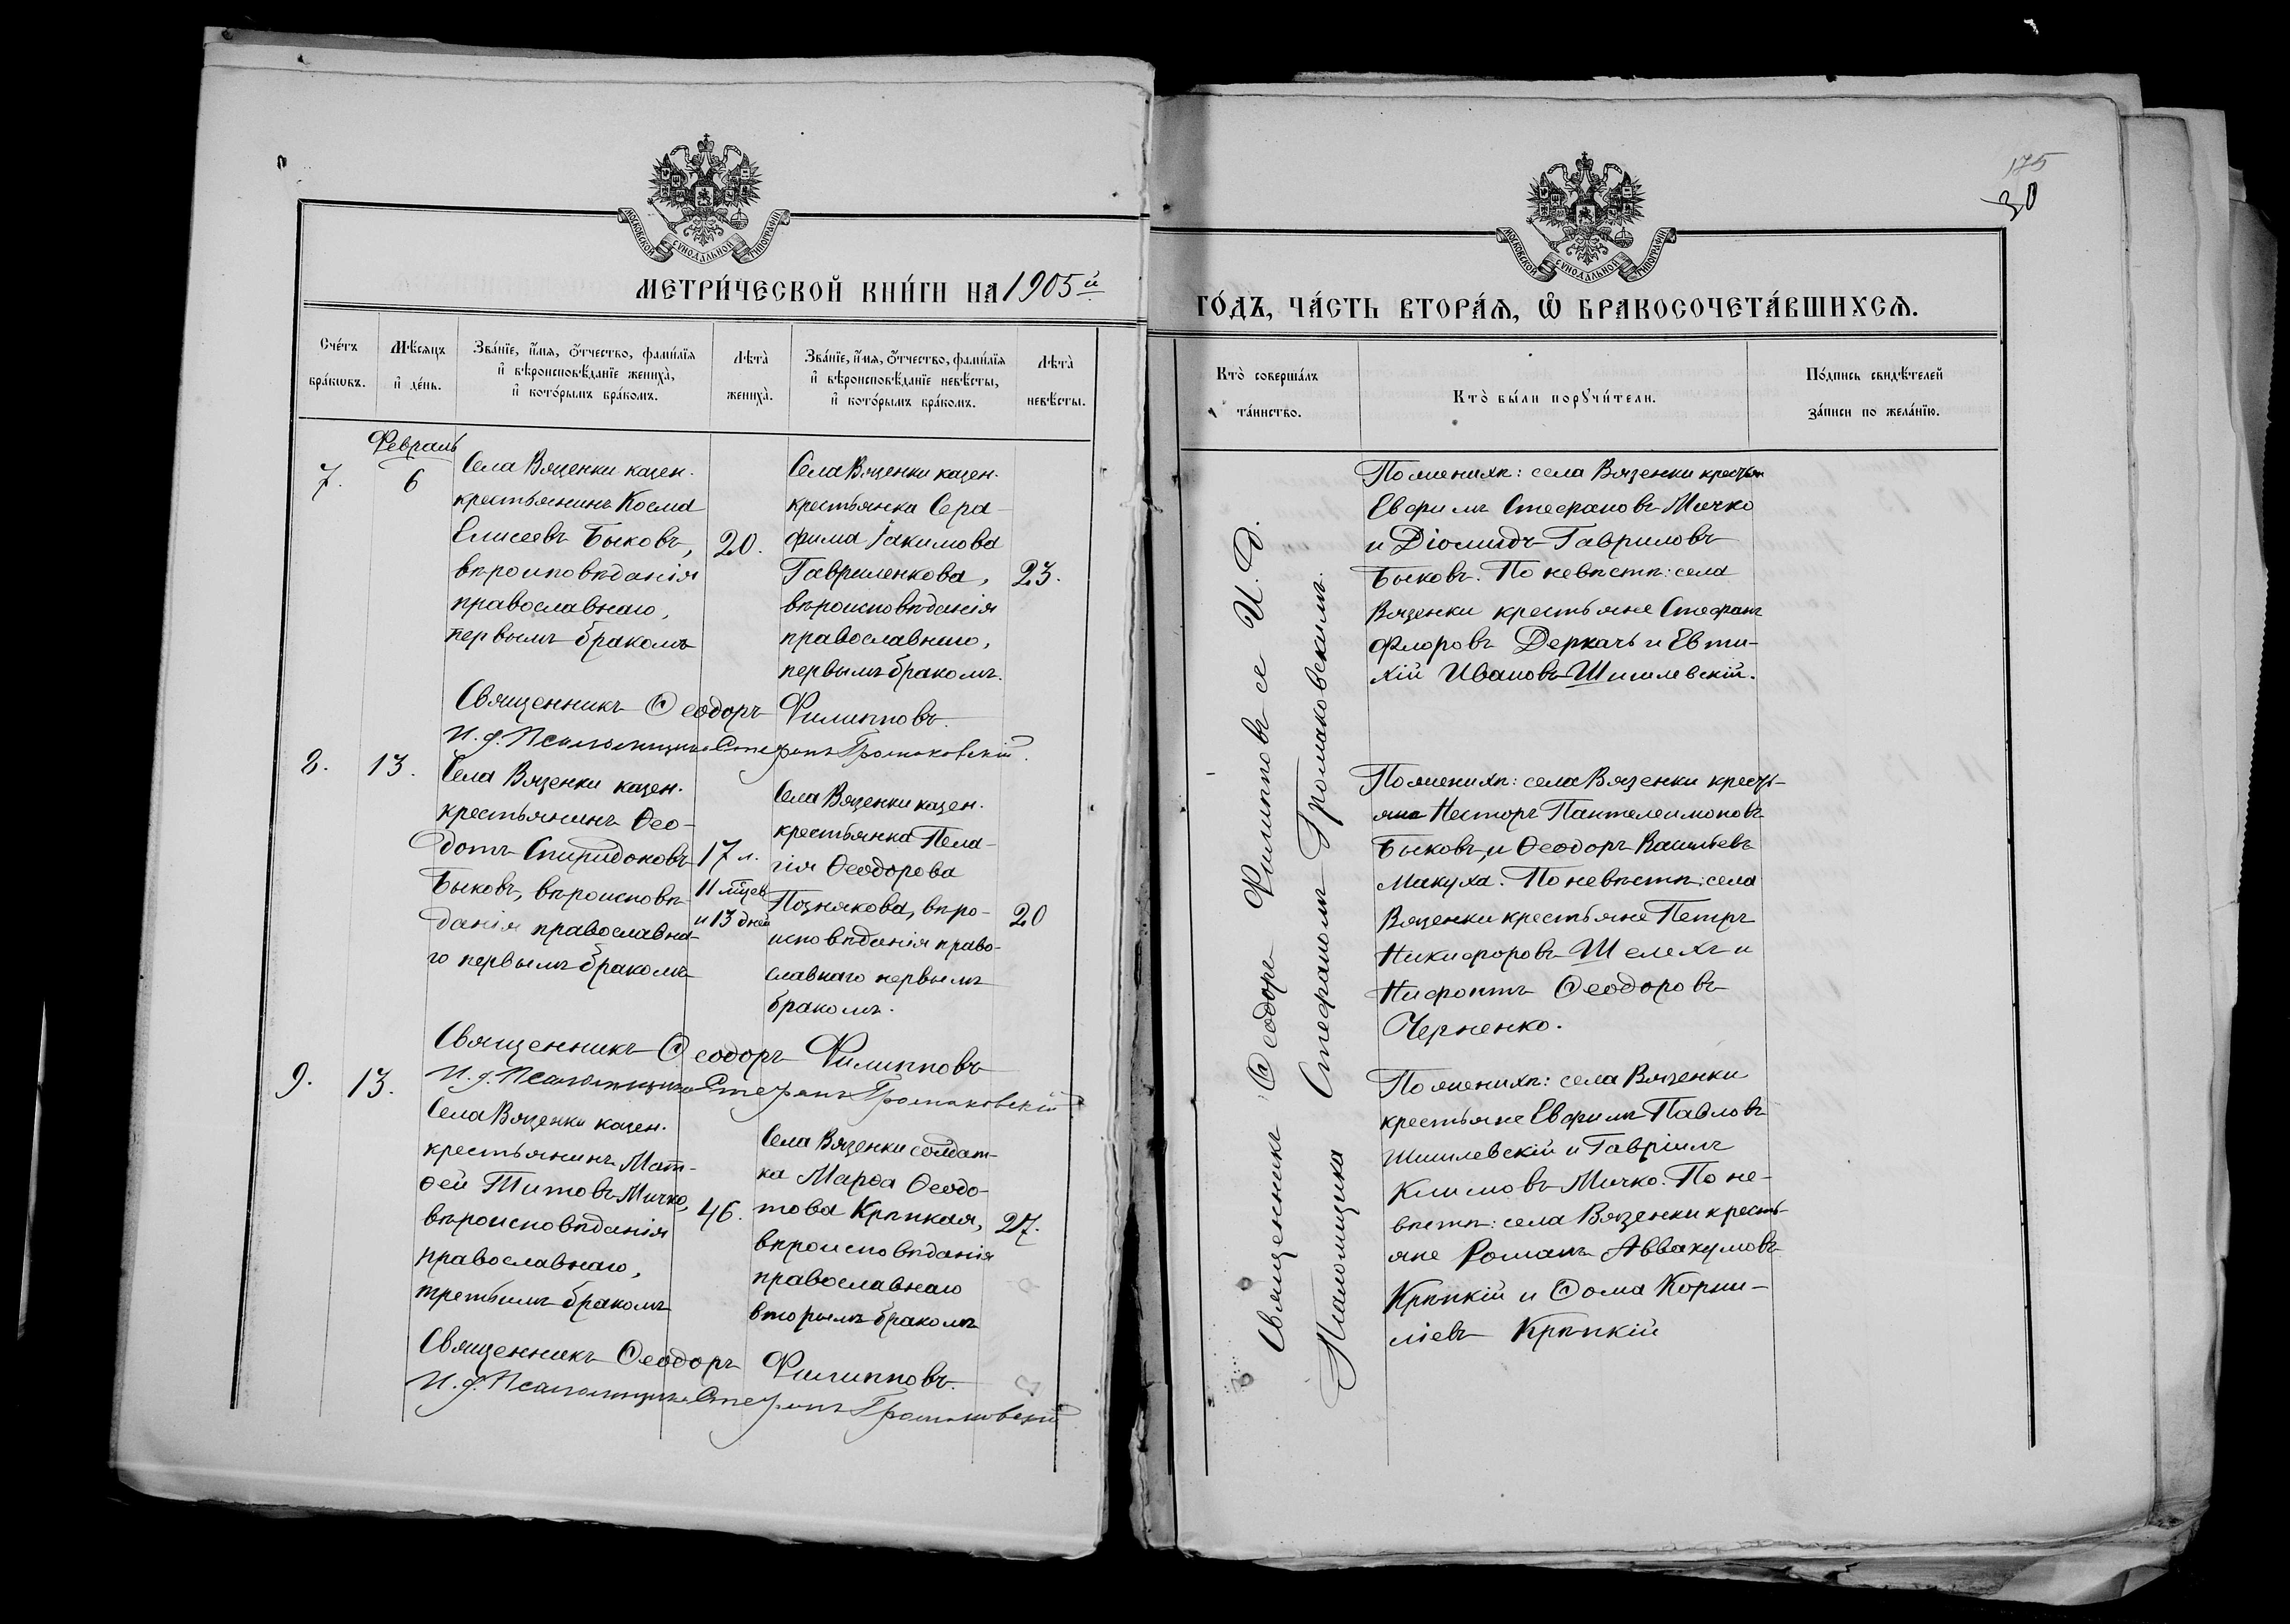 МОСКОВСКОЙ СУНОДАЛЬНОЙ ТИПОГРАФІИ
МЕТРИ́ЧЕСКОЙ КНИ́ГИ НА 1905й
Сче́тъ бра́кѡвъ.
Мѣ́сяцъ и҆ де́нь.
Зва́нїе, и҆́мя, ѻ҆́тчество, фами́лїя
и҆ вѣроисповѣ́данїе жениха̀,
и҆ кото́рымъ бра́комъ.
Лѣта̀ жениха̀.
Зва́нїе, и҆́мя, ѻ҆́тчество, фами́лїя
и҆ вѣроисповѣ́данїе невѣ́сты,
и҆ кото́рымъ бра́комъ.
Лѣта̀ невѣ́сты.
Февраль
7.
6
Села Вязенки казен.
крестьянинъ Косма
Елисеевъ Быковъ,
вѣроиповѣданія
православнаго,
первымъ бракомъ
20.
Села Вязенки казен.
крестьянка Сера-
фима Іакимова
Гавриленкова,
вѣроисповѣданія
православнаго,
первымъ бракомъ.
23.
Священникъ Ѳеодоръ Филипповъ.
И. д. Псаломщика Стефанъ Громаковскій.
8.
13.
Села Вязенки казен.
крестьянинъ Ѳео-
дотъ Спиридоновъ
Быковъ, вѣроисповѣ-
данія православна-
го первымъ бракомъ
17 л.
11 мцев
и 13 дней
Села Вязенки казен.
крестьянка Пела-
гія Ѳеодорова
Познякова, вѣро-
исповѣданія право-
славнаго первымъ
бракомъ.
20
Священникъ Ѳеодоръ Филипповъ
И. д. Псаломщика Стефанъ Громаковскій
9.
13.
Села Вязенки казен.
крестьянинъ Мат-
ѳей Титовъ Мичко,
вѣроисповѣданія
православнаго,
третьимъ бракомъ
46.
Села Вязенки солдат-
ка Марѳа Ѳеодо-
това Крѣпкая,
вѣроисповѣданія
православнаго
вторымъ бракомъ
27.
Священникъ Ѳеодоръ Филипповъ.
И. д. Псаломщика Стефанъ Громаковскій
175
30
МОСКОВСКОЙ СУНОДАЛЬНОЙ ТИПОГРАФІИ
ГО́ДЪ, ЧА́СТЬ ВТОРА́Ѧ, Ѽ БРАКОСОЧЕТА́ВШИХСѦ.
Кто̀ соверша́лъ
та́инство.
Кто̀ бы́ли порꙋчи́тели.
По́дпись свидѣ́телей
за́писи по жела́нїю.
Священникъ Ѳеодоръ Филипповъ и И. Д.
Псаломщика Стефаномъ Громаковскимъ.
По женихѣ: села Вязенки крестьян
Евфимъ Стефановъ Мичко
и Діомидъ Гавриловъ
Быковъ. По невѣстѣ: села
Вязенки крестьяне Стефанъ
Флоровъ Деркачъ и Евти-
хій Ивановъ Шишлевскій.
По женихѣ: села Вязенки кресть-
яне Несторъ Пантелеимоновъ
Быковъ, и Ѳеодоръ Васильевъ
Макуха. По невѣстѣ: села
Вязенки крестьяне Петръ
Никифоровъ Шелехъ и
Нифонтъ Ѳеодоровъ
Черненко.
По женихѣ: села Вязенки
крестьяне Евфимъ Павловъ
Шишлевскій и Гавріилъ
Климовъ Мичко. По не-
вѣстѣ: села Вязенки кресть-
яне Романъ Аввакумовъ
Крѣпкій и Ѳома Корни-
ліевъ Крѣпкій